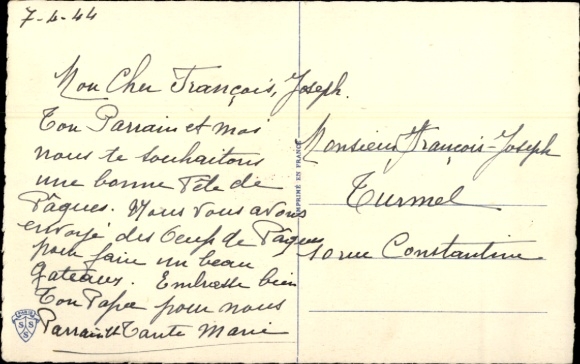 7-4-44
Mon Cher François, Joseph.
Ton Parrain et moi
nous te souhaitons
une bonne Fête de
Pâques. Nous vous avons
envoyé des Oeufs de Pâques
pour faire un beau
Gateaux. Embrasse bien
Ton Papa pour nous
Parrain et Tante Marie
IMPRIMÉ EN FRANCE
Monsieur François-Joseph
Turmel
10 rue Constantine